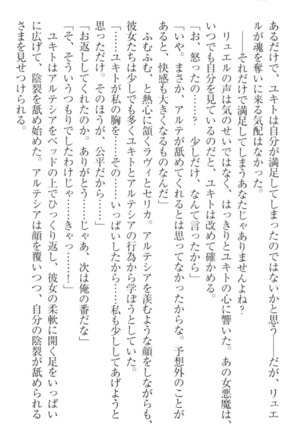 だが、ユキトは自分が満足してしまったのではないかと思う――だが、リュエ
ルが魂を奪いに来る気配はなかった。
それだけで満足してしまうあなたじゃありませんよね?
リュエルの声は気のせいではなく、はっきりとユキトの心に響いた。あの女悪魔は、
いつでも自分を見ているのだと、ユキトは改めて確かめる。
「お、怒ったの……? 少しだけ、なんて言ったから」
「いや。まさか、アルテが舐めてくれるとは思ってなかったからな。予想外のことが
あると、快感も大きくなるものなんだ」
ふむふむ、と熱心に頷くラヴィとセリカ。アルテシアを羨むような顔をしながらも、
彼女たちは少しでも多くユキトとアルテシアの行為から学ぼうとしていた。
「ユキトが私の胸を……その……いっぱいしたから……私も少ししてあげようと
思っただけ。そのほうが、公平だから……」
「お返ししてくれたのか。ありがとう……じゃあ、次は俺の番だな」
「そ、そういうつもりでしたわけじゃ……きゃっ……!」
ユキトはアルテシアをベッドの上でひっくり返し、彼女の柔軟に開く足をいっぱい
に広げて、陰裂を舐め始めた。アルテシアは顔を覆いつつ、自分の陰裂が舐められる
さまを見せつけられる。